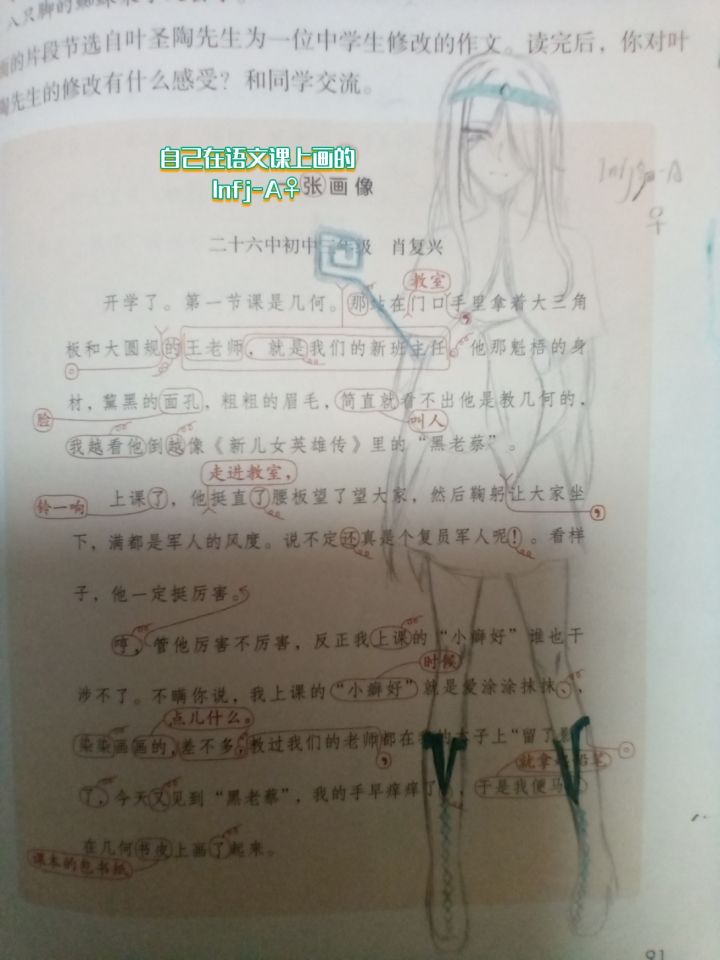 八只脚的
面的片段节选自叶圣陶先生为一位中学生修改的作文。读完后，你对叶
陶先生的修改有什么感受？和同学交流。
自己在语文课上画的
Infj-A♀
一张画像
Infj-A
♀
二十六中初中三年级 肖复兴
教室
开学了。第一节课是几何。那站在门口手里拿着大三角
板和大圆规的王老师，就是我们的新班主任。他那魁梧的身
材，黧黑的面孔，粗粗的眉毛，简直就看不出他是教几何的，
脸
叫人
我越看他倒越像《新儿女英雄传》里的“黑老蔡”。
走进教室，
铃一响
上课了，他挺直了腰板望了望大家，然后鞠躬让大家坐
，
下，满都是军人的风度。说不定还真是个复员军人呢！。看样
子，他一定挺厉害。
哼，管他厉害不厉害，反正我上课的“小癖好”谁也干
时候
涉不了。不瞒你说，我上课的“小癖好”就是爱涂涂抹抹、，
点儿什么。
染染画画的，差不多，教过我们的老师都在我的本子上“留了影
，
就拿
了，今天又见到“黑老蔡”，我的手早痒痒了，于是我便马
在几何书皮上画了起来。
课本的包书纸
91